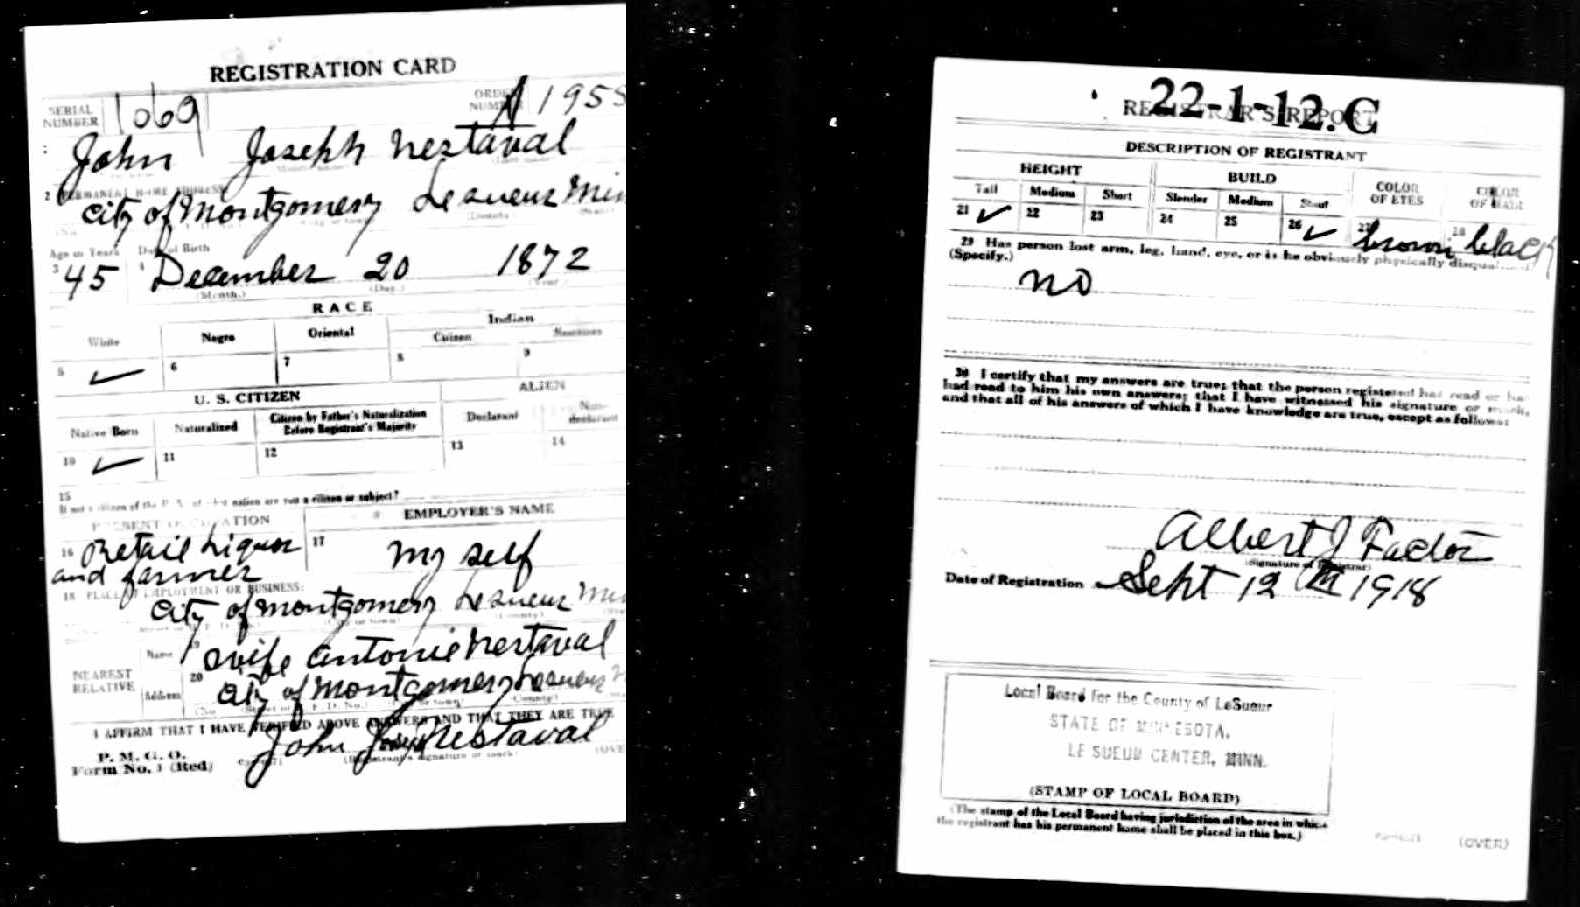 REGISTRATION CARD
SERIAL NUMBER 1069 ORDER NUMBER A 1955
John Joseph Nestaval
2 PERMANENT HOME ADDRESS
City of Montgomery Le Sueur Min
Age in Years Date of Birth
3 45 4 December 20 1872
(Month.) (Day.) (Year.)
RACE
White Negro Oriental Indian
Citizen Noncitizen
5 ✓ 6 7 8 9
U. S. CITIZEN ALIEN
Native Born Naturalized Citizen by Father's Naturalization Before Registrant's Majority Declarant Non-declarant
10 ✓ 11 12 13 14
15
If not a citizen of the U. S. of what nation are you a citizen or subject?
PRESENT OCCUPATION EMPLOYER'S NAME
16 Retail Liquor 17 my self
and farmer
18 PLACE OF EMPLOYMENT OR BUSINESS:
City of Montgomery Le Sueur Min
NEAREST RELATIVE
Name 19 wife Antonie Nestaval
Address 20 City of Montgomery Le Sueur
I AFFIRM THAT I HAVE VERIFIED ABOVE ANSWERS AND THAT THEY ARE TRUE
P. M. G. O.
Form No. 1 (Red) John Joseph Nestaval
(Registrant's signature or mark) (OVE
22-1-12.C
REGISTRAR'S REPORT
DESCRIPTION OF REGISTRANT
HEIGHT BUILD COLOR OF EYES COLOR OF HAIR
Tall Medium Short Slender Medium Stout
21 ✓ 22 23 24 25 26 ✓ 27 brown 28 black
29 Has person lost arm, leg, hand, eye, or is he obviously physically disqualified?
(Specify.)
no
30 I certify that my answers are true; that the person registered has read or has
had read to him his own answers; that I have witnessed his signature or mark,
and that all of his answers of which I have knowledge are true, except as follows:
Albert J Factor
(Signature of Registrar)
Date of Registration Sept 12 th 1918
Local Board for the County of LeSueur
STATE OF MINNESOTA,
LE SUEUR CENTER, MINN.
(STAMP OF LOCAL BOARD)
(The stamp of the Local Board having jurisdiction of the area in which
the registrant has his permanent home shall be placed in this box.)
(OVER)